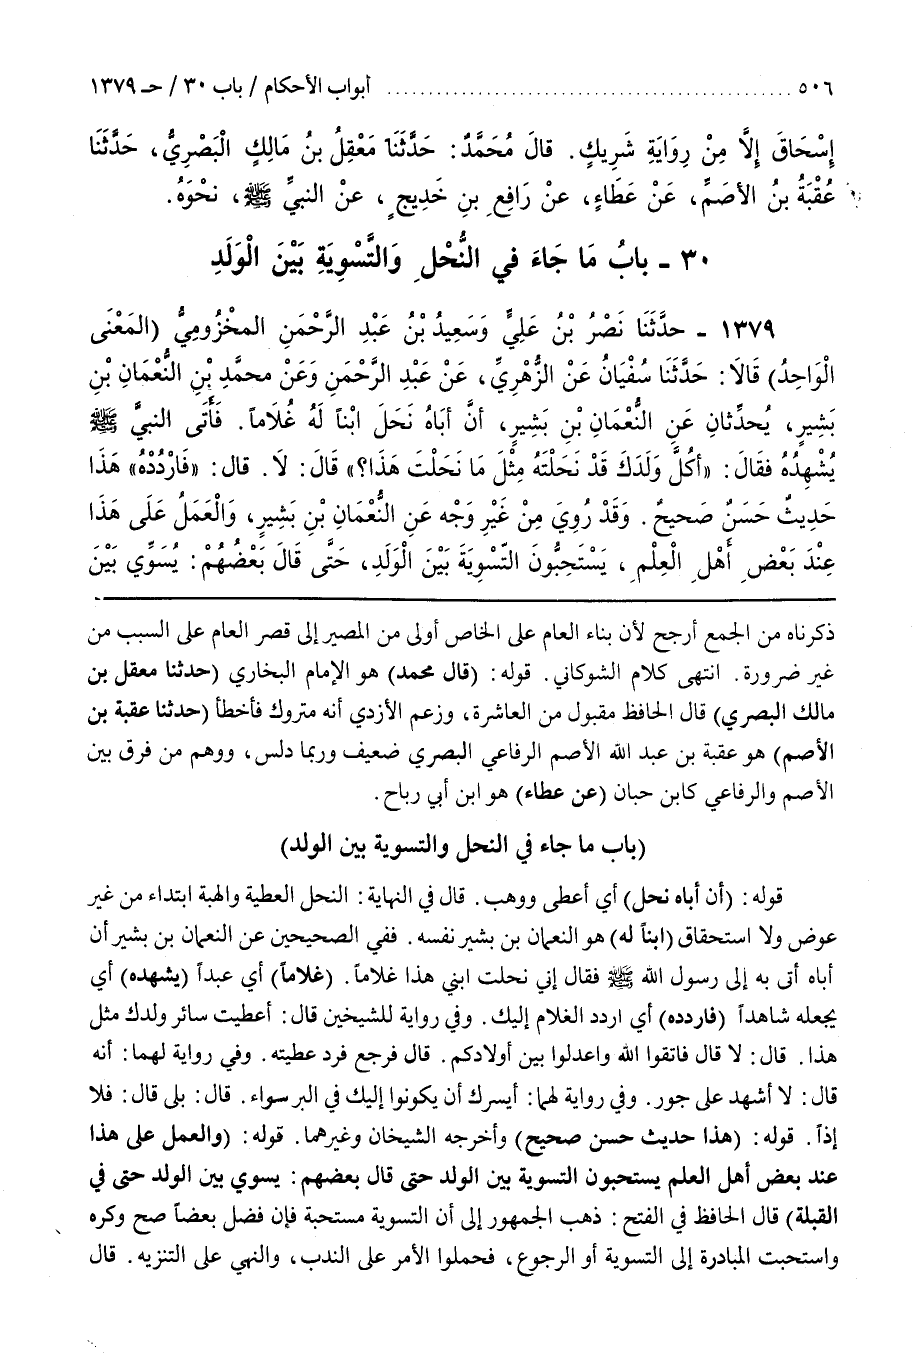 ٥٠٦ ........................................................ أبواب الأحكام / باب ٣٠ / حـ ١٣٧٩
إِسْحَاقَ إِلَّا مِنْ رِوَايَةِ شَرِيكٍ. قالَ مُحَمَّدٌ: حَدَّثَنَا مَعْقِلُ بنُ مَالِكٍ الْبَصْرِيُّ، حَدَّثَنَا
عُقْبَةُ بنُ الأَصَمِّ، عَنْ عَطَاءٍ، عنْ رَافِعِ بنِ خَدِيجٍ، عنْ النبيِّ ﷺ، نحْوَهُ.
٣٠ ـ بابُ مَا جَاءَ في النُّحْلِ وَالتَّسْوِيَةِ بَيْنَ الْوَلَدِ
١٣٧٩ ـ حدَّثَنَا نَصْرُ بْنُ عَلِيٍّ وَسَعِيدُ بْنُ عَبْدِ الرَّحْمَنِ المخْزُومِيُّ (المَعْنَى
الْوَاحِدُ) قَالَا: حَدَّثَنَا سُفْيَانُ عَنْ الزُّهْرِيِّ، عَنْ عَبْدِ الرَّحْمَنِ وَعَنْ محمَّدِ بْنِ النُّعْمَانِ بْنِ
بَشِيرٍ، يُحدِّثانِ عَنِ النُّعْمَانِ بْنِ بَشِيرٍ، أنَّ أبَاهُ نَحَلَ ابْناً لَهُ غُلَاماً. فَأَتَى النبيَّ ﷺ
يُشْهِدُهُ فقَالَ: «أكُلَّ وَلَدَكَ قَدْ نَحَلْتَهُ مِثْلَ مَا نَحَلْتَ هَذَا؟» قَالَ: لَا. قال: «فَارْدُدْهُ» هَذَا
حَدِيثٌ حَسَنٌ صَحيحٌ. وَقَدْ رُوِيَ مِنْ غَيْرِ وَجْه عَنِ النُّعْمَانِ بْنِ بَشِيرٍ، وَالْعَمَلُ عَلَى هَذَا
عِنْدَ بَعْضِ أَهْلِ الْعِلْمِ، يَسْتَحِبُّونَ التّسْوِيَةَ بَيْنَ الْوَلَدِ، حَتَّى قَالَ بَعْضُهُمْ: يُسَوِّي بَيْنَ
ذكرناه من الجمع أرجح لأن بناء العام على الخاص أولى من المصير إلى قصر العام على السبب من
غير ضرورة. انتهى كلام الشوكاني. قوله: (قال محمد) هو الإمام البخاري (حدثنا معقل بن
مالك البصري) قال الحافظ مقبول من العاشرة، وزعم الأزدي أنه متروك فأخطأ (حدثنا عقبة بن
الأصم) هو عقبة بن عبد الله الأصم الرفاعي البصري ضعيف وربما دلس، ووهم من فرق بين
الأصم والرفاعي كابن حبان (عن عطاء) هو ابن أبي رباح.
(باب ما جاء في النحل والتسوية بين الولد)
قوله: (أن أباه نحل) أي أعطى ووهب. قال في النهاية: النحل العطية والهبة ابتداء من غير
عوض ولا استحقاق (ابناً له) هو النعمان بن بشير نفسه. ففي الصحيحين عن النعمان بن بشير أن
أباه أتى به إلى رسول الله ﷺ فقال إني نحلت ابني هذا غلاماً. (غلاماً) أي عبداً (يشهده) أي
يجعله شاهداً (فاردده) أي اردد الغلام إليك. وفي رواية للشيخين قال: أعطيت سائر ولدك مثل
هذا. قال: لا قال فاتقوا الله واعدلوا بين أولادكم. قال فرجع فرد عطيته. وفي رواية لهما: أنه
قال: لا أشهد على جور. وفي رواية لهما: أيسرك أن يكونوا إليك في البر سواء. قال: بلى قال: فلا
إذاً. قوله: (هذا حديث حسن صحيح) وأخرجه الشيخان وغيرهما. قوله: (والعمل على هذا
عند بعض أهل العلم يستحبون التسوية بين الولد حتى قال بعضهم: يسوي بين الولد حتى في
القبلة) قال الحافظ في الفتح: ذهب الجمهور إلى أن التسوية مستحبة فإن فضل بعضاً صح وكره
واستحبت المبادرة إلى التسوية أو الرجوع، فحملوا الأمر على الندب، والنهي على التنزيه. قال